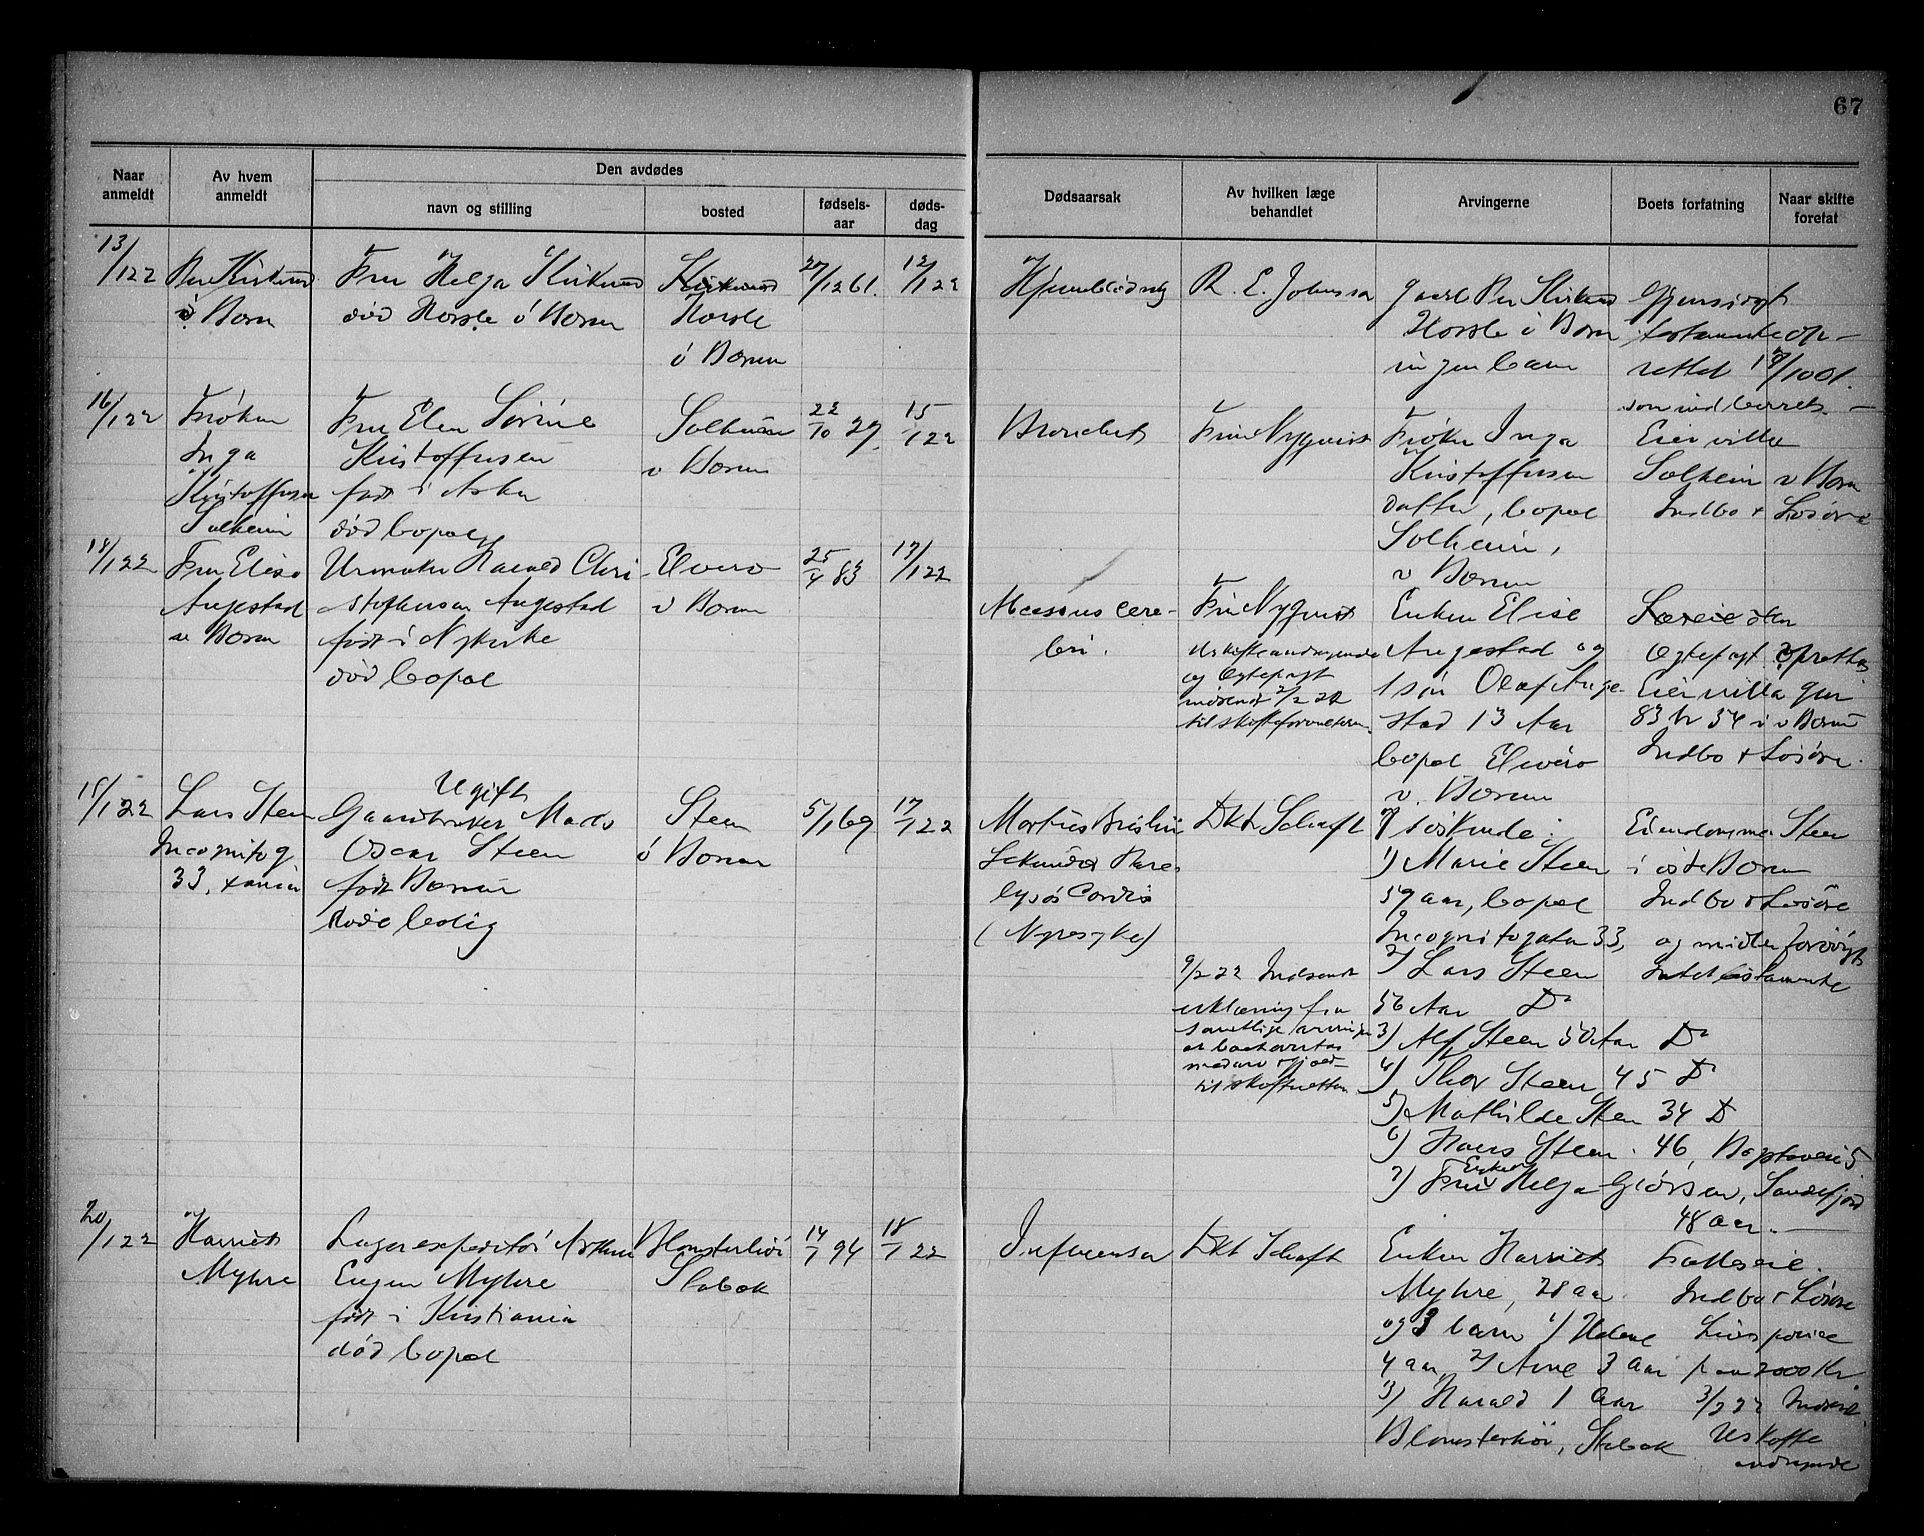 67
Naar anmeldt
Av hvem anmeldt
Den avdødes
navn og stilling
bosted
fødsels-aar
døds-dag
Dødsaarsak
Av hvilken læge behandlet
Arvingerne
Boets forfatning
Naar skifte foretat
13/1 22
Fru Helga
død Horsle ö Bærum
Horsle
ö Bærum
27/12 61.
12/1 22
R. E. Johnsen
Horsle ö Bærum
ingen barn
Gjensidigt
testamente op-
rettet
som indberettes. -
16/1 22
Frøken
Inga
Kristoffersen
Solheim
Fru Elen Sörine
Kristoffersen
født i Asker
död bopæl
Solheim
v Bærum
22/10 29.
15/1 22
Bronchit
Finn Nyquist
Frøken Inga
Kristoffersen
datter, bopæl
Solheim,
v Bærum
Eier villa
Solheim v Bærum
Indbo + Lösöre
18/1 22
Fru Elise
Angestad
v Bærum
Urmaker Harald Chri
stoffersen Angestad
født i Nykirke
død bopæl
Elvero
v Bærum
25/4 83
17/1 22
Abcessus cere-
bri.
Finn Nyquist
Uskifteandragende
og Egtepagt
indsendt 2/2 22
til skifteforvalteren.
Enken Elise
Angestad og
1 søn Olaf Ange-
stad 13 Aar
bopæl Elvero
v. Bærum
Særeie den
Egtepagt oprettet
Eier villa gnr
83 br 34 i v Bærum
Indbo + Lösöre.
18/1 22
Lars Steen
Incognitog
33, Xania
Ugift
Gaardbruker Mads
Oscar Steen
født Bærum
døde bolig
Steen
ö Bærum
5/1 69
17/1 22
Morbus Brightii
Sekundær Para-
lysis Cordis
(Nyresyke)
Dkt Schaft
9/2 22 Indsendt
erklæring fra
samtlige arvinger
at boet overtas
til skifteretten
7 söskende:
1) Marie Steen
59 aar, bopæl
Incognitogaten 33,
2) Lars Steen
56 Aar Do
3) Alf Steen 50 Aar Do
4) Thor Steen 45 Do
5) Mathilde Steen 34 Do
6) Hans Steen. 46,
7) Fru Enkefru Helga Giörsen, Sandefjord
48 aar. -
Eiendommen Steen
i östre Bærum
Indbo + Lösöre
og midler forövrigt
Intet testamente
20/1 22
Harriet
Myhre
Lagerexpeditör Arthur
Eugen Myhre
født i Kristiania
død bopæl
Blomsterhöi
Stabæk
14/1 94
18/1 22
Influensa
Dkt Schaft
Enken Harriet
Myhre, 28 aar
og 3 barn 1) Helene
4 aar, 2) Arne 3 aar
3) Harald 1 aar
Blomsterhöi, Stabæk
Fælleseie.
Indbo + Lösöre
Livspolice
paa 2000 Kr
3/2 22 Indsendt
Uskifte
andragende